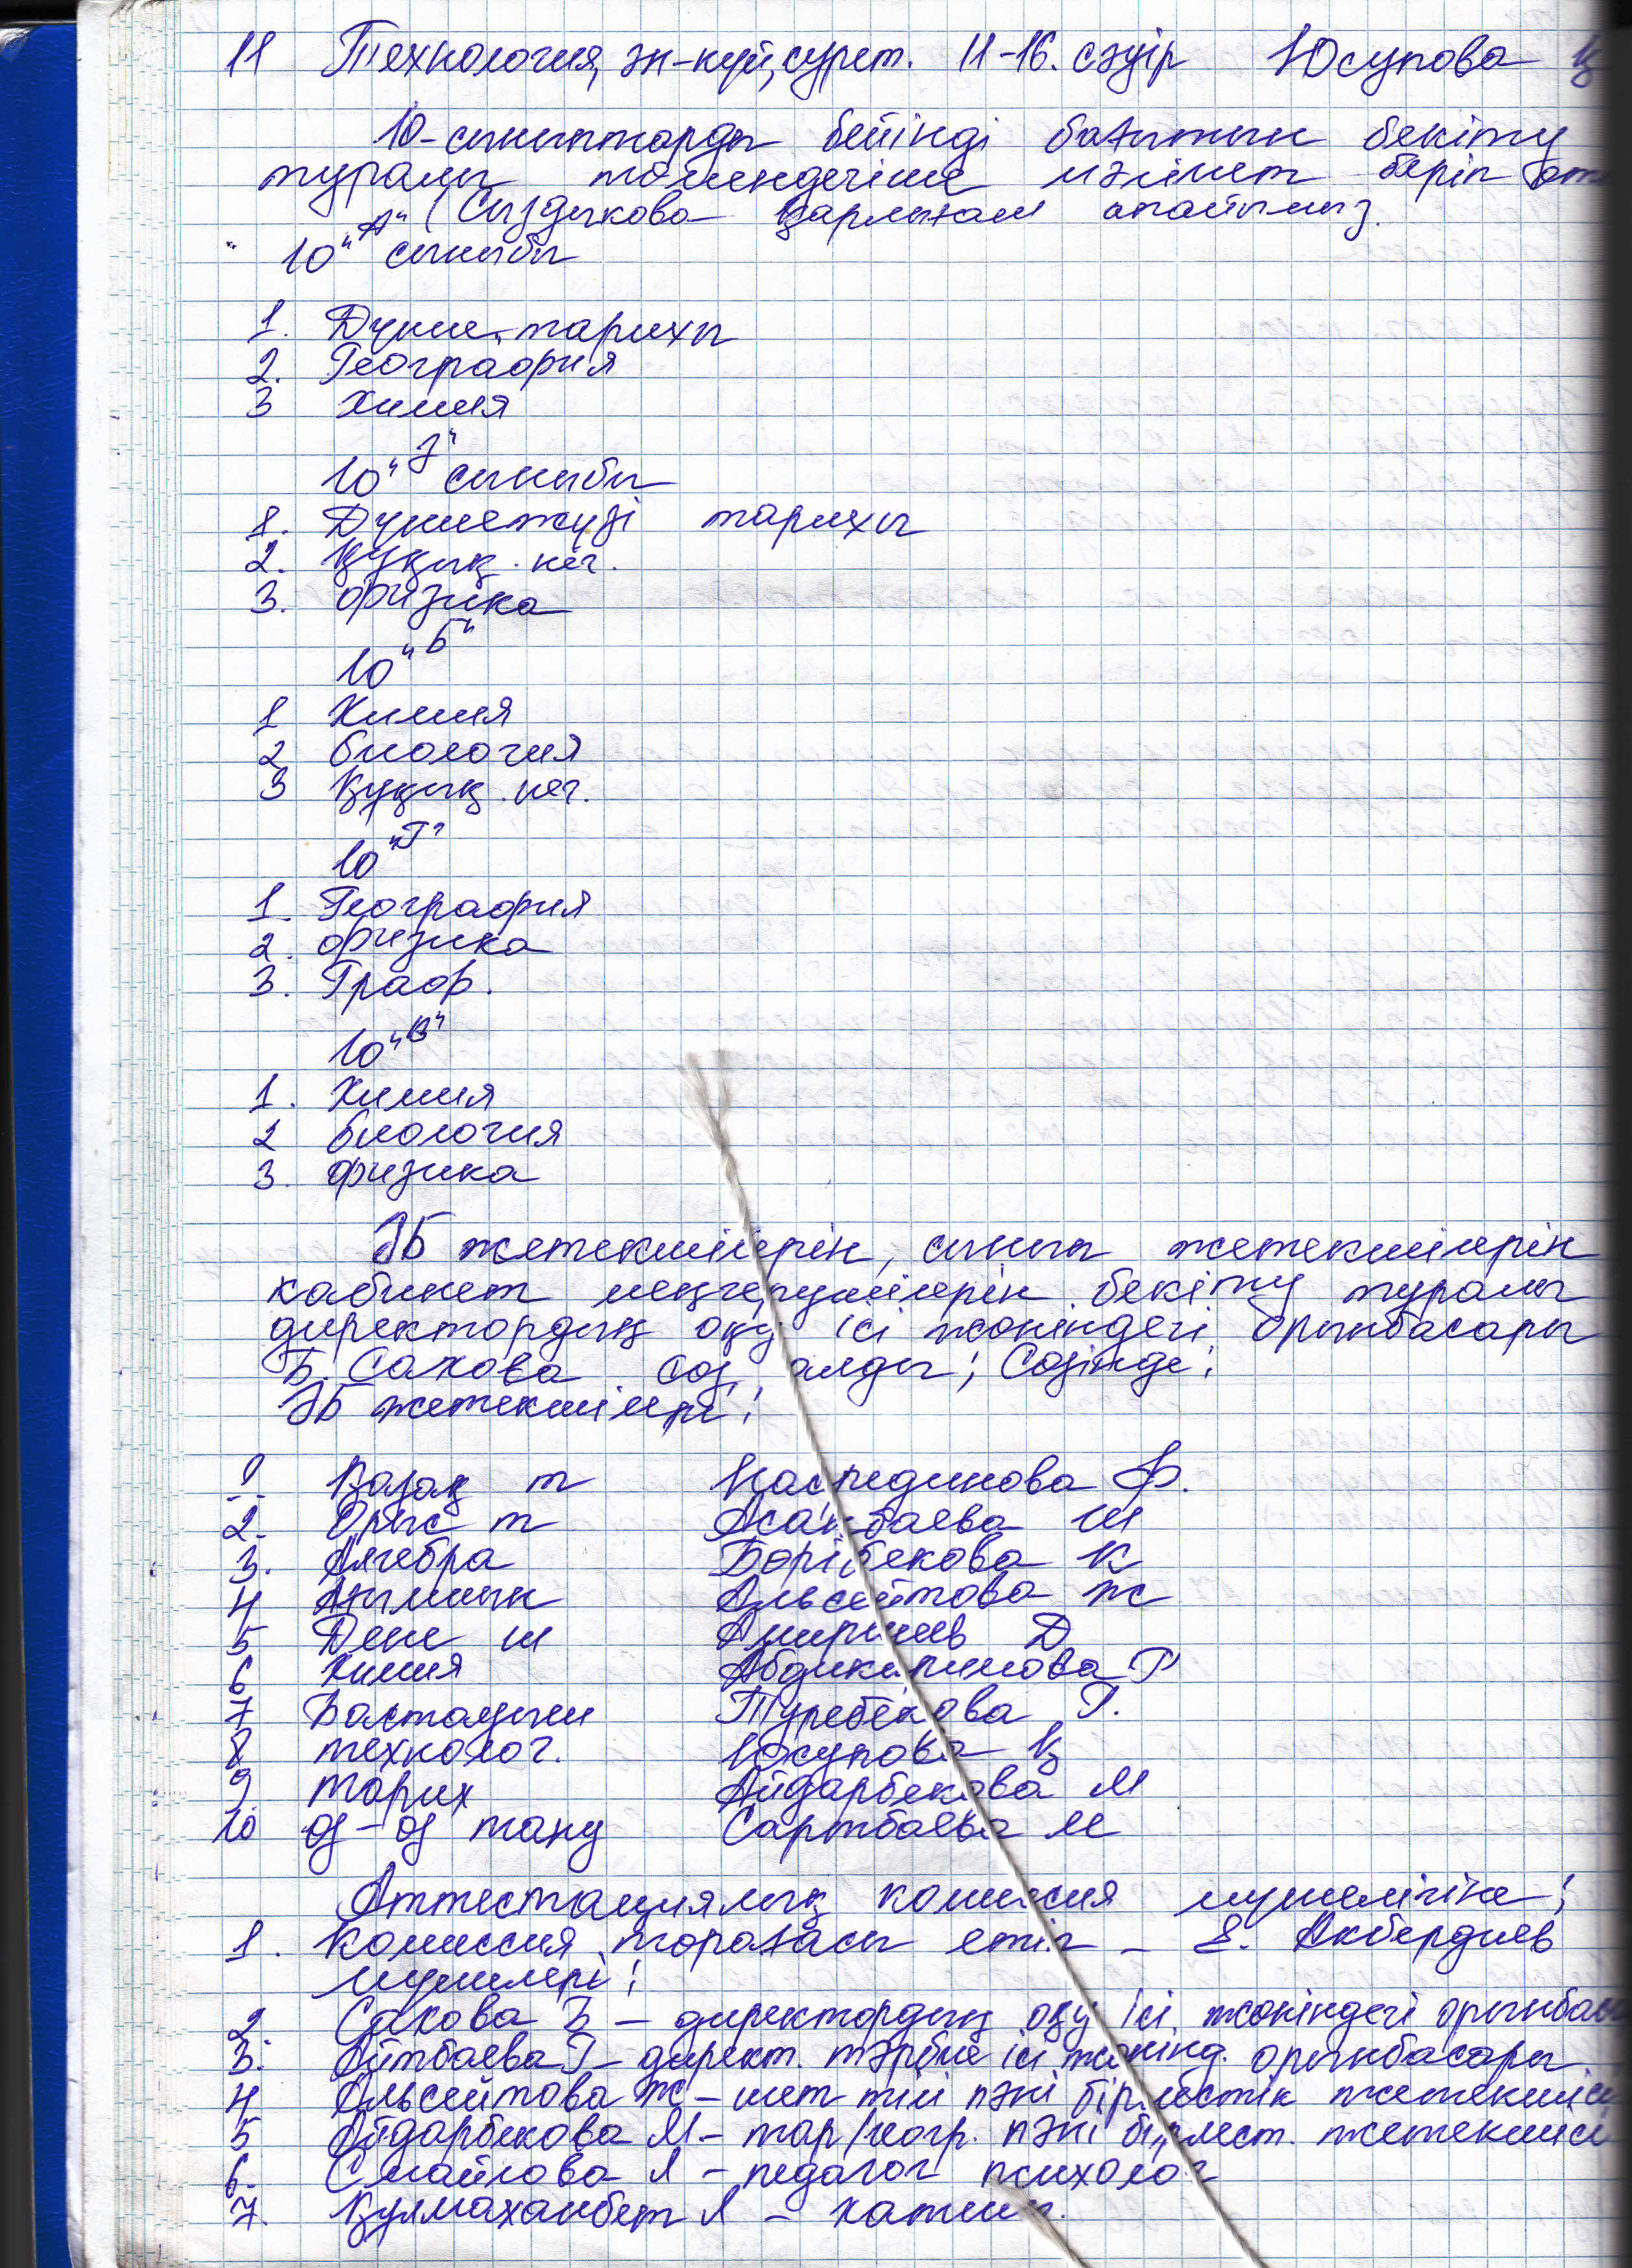 11 Технология, ән-күй, сурет. 11-16. сәуір Юсупова Қ
10-сыныптарды бейінді бағытын бекіту
туралы төмендегіше мәлімет беріп
(Сыздыкова Қарлығаш апайымыз.
10 "А" сыныбы
1. Дүние. тарихы
2. География
3 Химия
10 "Ә" сыныбы
1. Дүниежүзі тарихы
2. Құқық. нег.
3. физика
10 "Б"
1 Химия
2 биология
3 Құқық. нег.
10 "Г"
1. География
2. физика
3. Граф.
10 "В"
1. Химия
2 биология
3. физика
ӘБ жетекшілерін, сынып жетекшілерін
кабинет меңгерушілерін бекіту туралы
директордың оқу ісі жөніндегі орынбасары
Б. Сахова сөз алды; Сөзінде:
ӘБ жетекшілері:
1. Қазақ т Насрединова Ф.
2. Орыс т Асанбаева Ш
3. Алгебра Бөрібекова К
4 Ағылшын Альсейтова Ж
5 Дене ш Амиришев Д
6 Химия Абдикаримова Г
7 Бастауыш Туребекова Г.
8 технолог. Юсупова Қ
9 тарих Айдарбекова М
10 өз-өзі тану Сартбаева М
Аттестациялық комиссия мүшелігіне:
1. Комиссия төрағасы етіп - Е. Акбердиев
мүшелері:
2. Сахова Б - директордың оқу ісі жөніндегі орынбаса
3. Айтбаева Г - директ. тәрбие ісі жөнінд. орынбасары.
4 Альсейтова Ж - шет тілі пәні бірлестік жетекшісі
5 Айдарбекова М - тар/геогр. пәні бірлест. жетекшісі
6. Смайлова Л - педагог психолог
7. Құлмаханбет Л - хатшы.